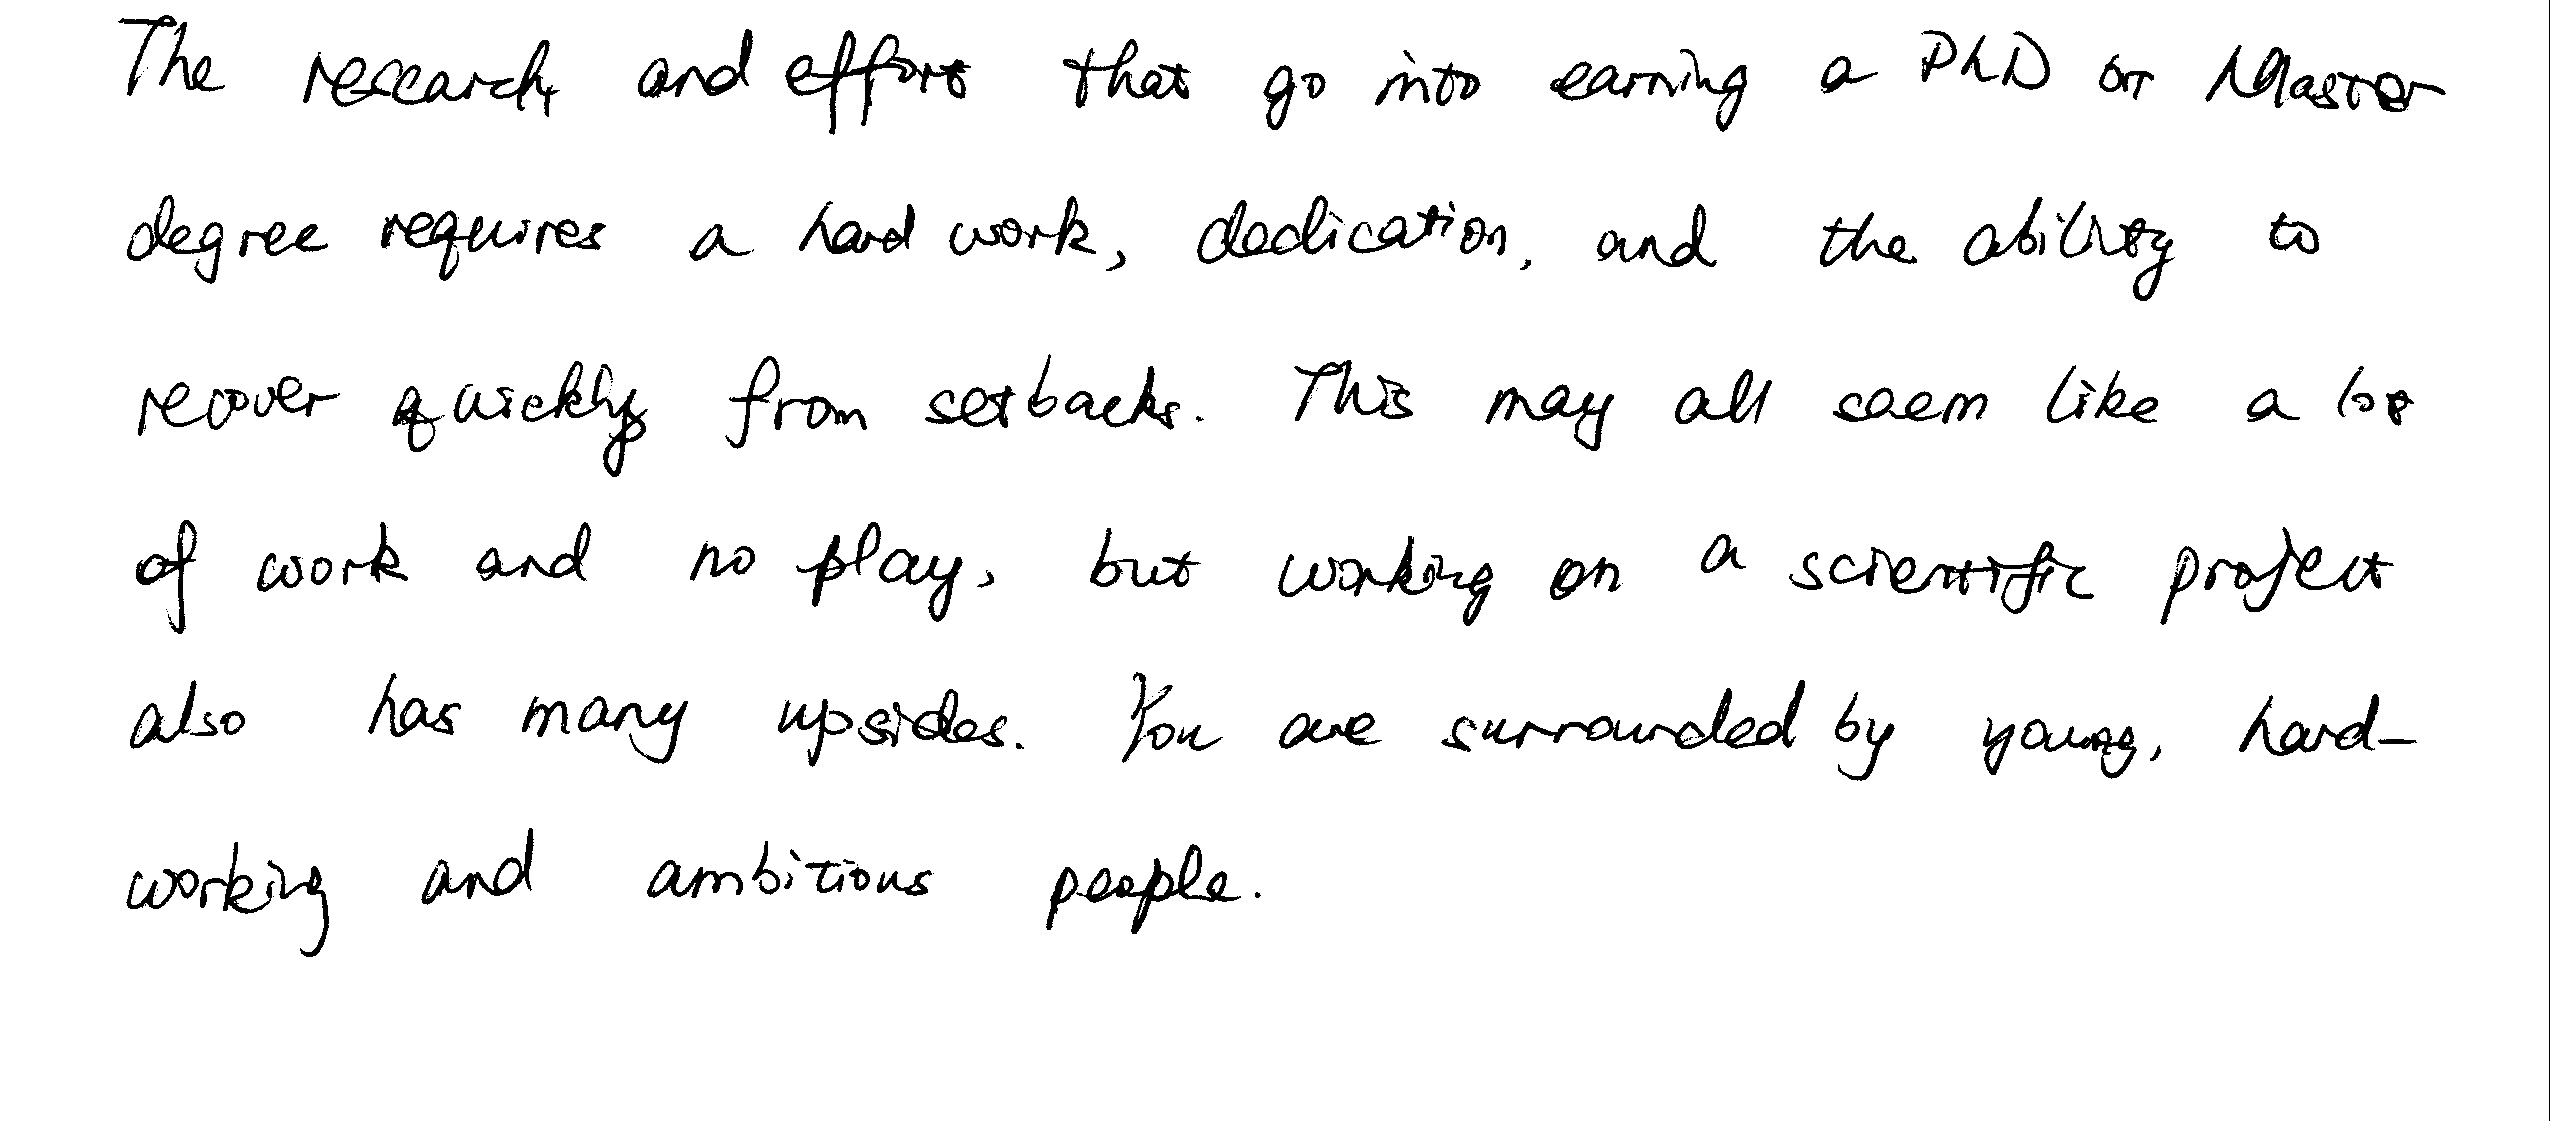 The research and effort that go into earning a PhD or Master
degree requires a hard work, dedication, and the ability to
recover quickly from setbacks. This may all seem like a lot
of work and no play, but working on a scientific project
also has many upsides. You are surrounded by young, hard-
working and ambitious people.